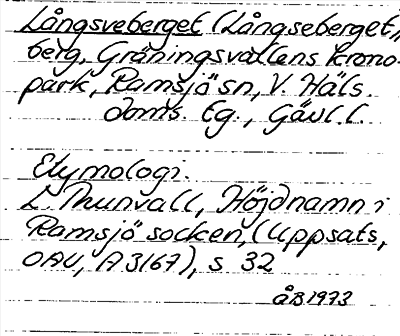 Långsveberget (Långseberget),
berg, Gräningsvallens krono-
park, Ramsjö sn, V. Häls.
doms. tg., Gävl. l.
Etymologi.
L. Thunvall, Höjdnamn i
Ramsjö socken, (Uppsats,
OAU, A 3167), s 32
åB 1973